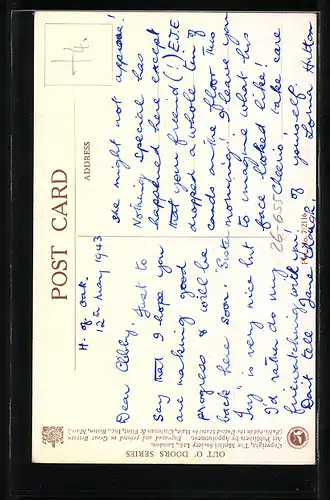 POST CARD
ADDRESS
H. of Oak.
12th May 1943
Dear Abby, Just to
say that I hope you
are making good
progress & will be
back here soon. "Sister
Ivy" is very nice but
I'd rather do my
firewatching with you!
Don't tell Jane though.
she might not approve!
Nothing special has
happened here except
that your friend (!) EJE
dropped a whole tin of
cards on the floor this
morning: I leave you
to imagine what his
face looked like!
Cheerio! Take care
of yourself.
Lorna Hutton
74.
26-655
OUT O' DOORS SERIES
Copyright, The Medici Society Ltd., London.
Art Publishers by Appointment. Engraved and printed in Great Britain
(Published in the United States by Hale, Cushman & Flint, Inc., Boston, Mass.)